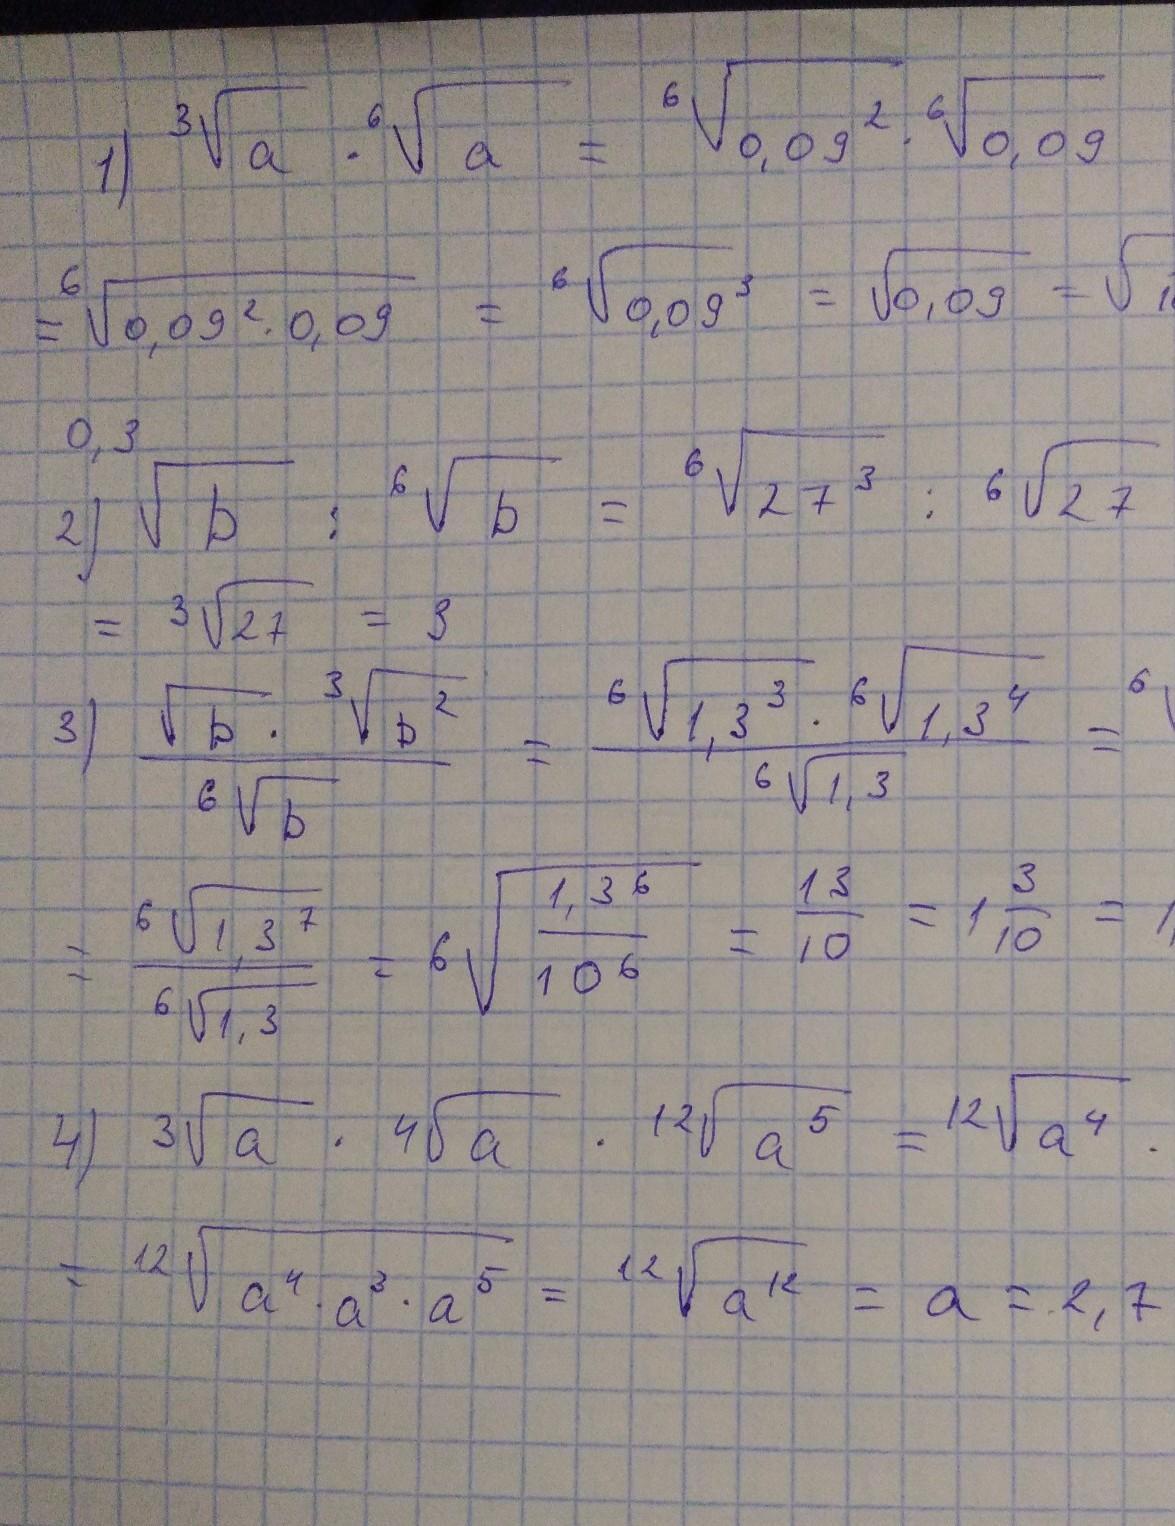 1) ³√a · ⁶√a = ⁶√0,09² · ⁶√0,09
= ⁶√0,09²·0,09 = ⁶√0,09³ = √0,09 =
0,3
2) √b : ⁶√b = ⁶√27³ : ⁶√27
= ³√27 = 3
3) (√b · ³√b²)/(⁶√b) = (⁶√1,3³ · ⁶√1,3⁴)/(⁶√1,3) =
= (⁶√1,3⁷)/(⁶√1,3) = ⁶√(1,3⁶/10⁶) = 13/10 = 1 3/10 =
4) ³√a · ⁴√a · ¹²√a⁵ = ¹²√a⁴ ·
= ¹²√a⁴·a³·a⁵ = ¹²√a¹² = a = 2,7